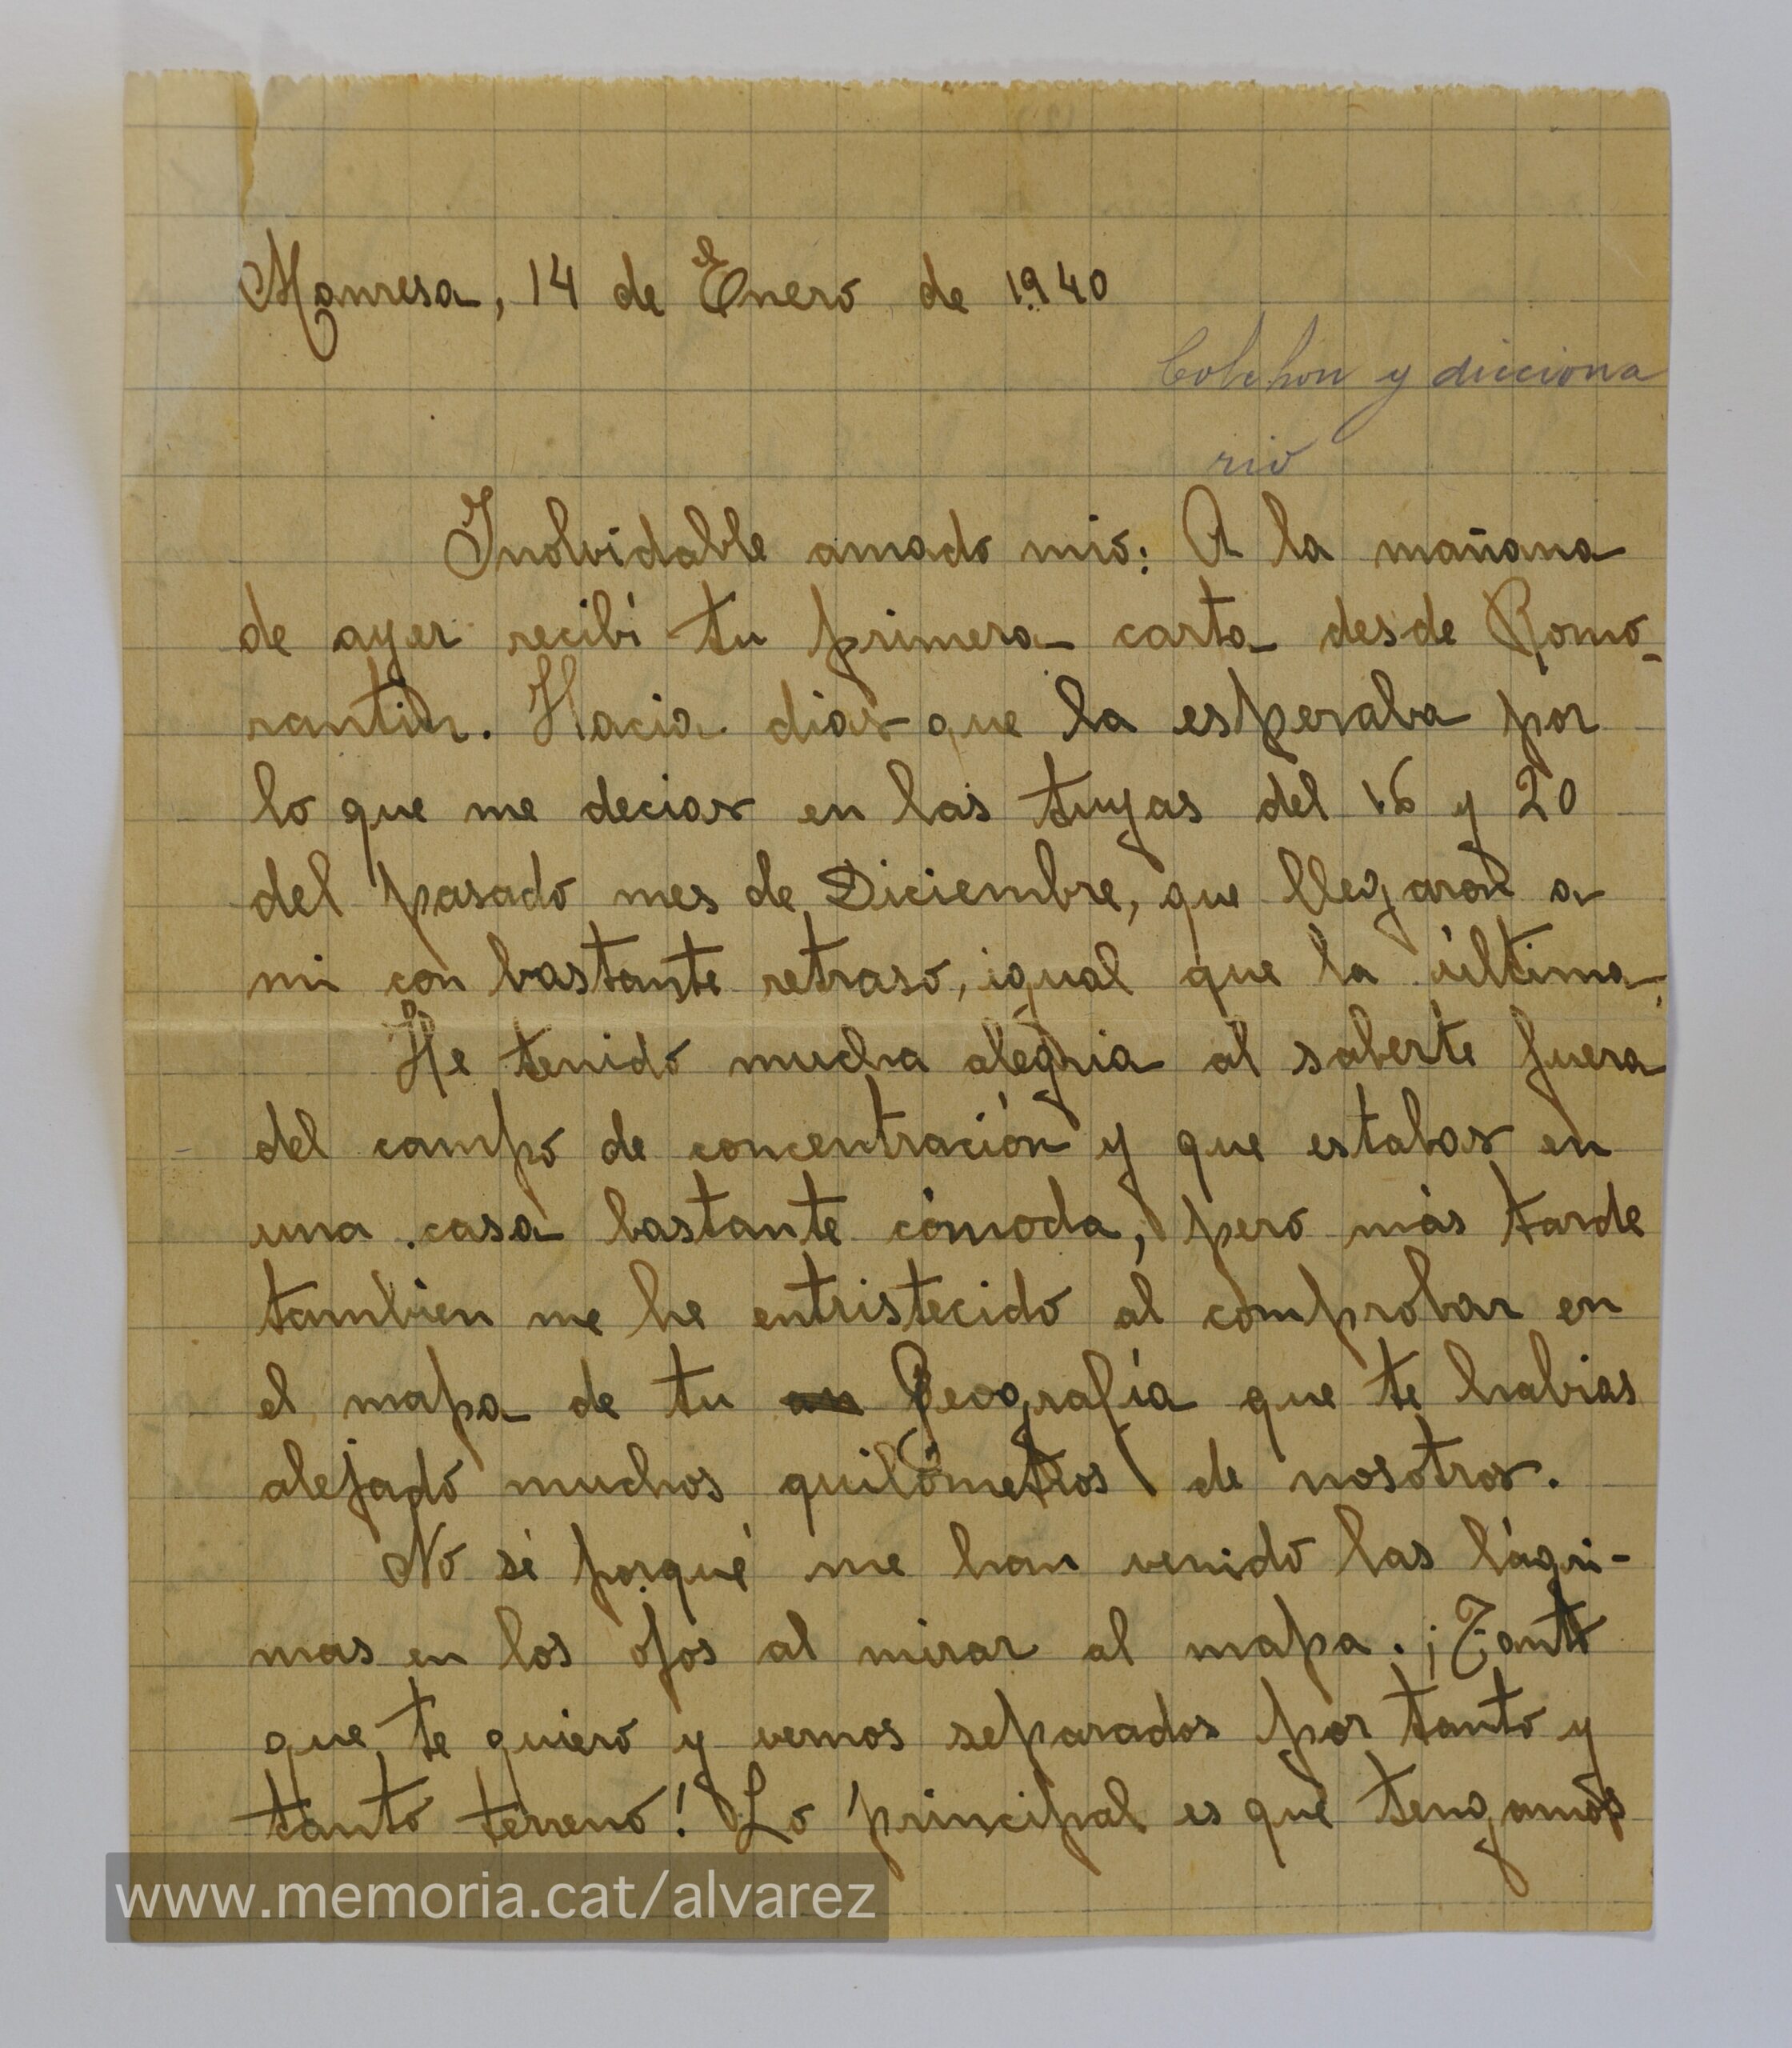 Manresa, 14 de Enero de 1940
Colchon y dicciona
rio
Inolvidable amado mio: A la mañana
de ayer recibí tu primera carta desde Romo-
rantin. Hacia dias que la esperaba por
lo que me decias en las tuyas del 16 y 20
del pasado mes de Diciembre, que llegaron a
mi con bastante retraso, igual que la última.
He tenido mucha alegria al saberte fuera
del campo de concentración y que estabas en
una casa bastante cómoda, pero más tarde
tambien me he entristecido al comprobar en
el mapa de tu Geografía que te habias
alejado muchos quilómetros de nosotros.
No sé porqué me han venido las lágri-
mas en los ojos al mirar al mapa. ¡Tanto
que te quiero y vernos separados por tanto y
tanto terreno! Lo principal es que tengamos
www.memoria.cat/alvarez